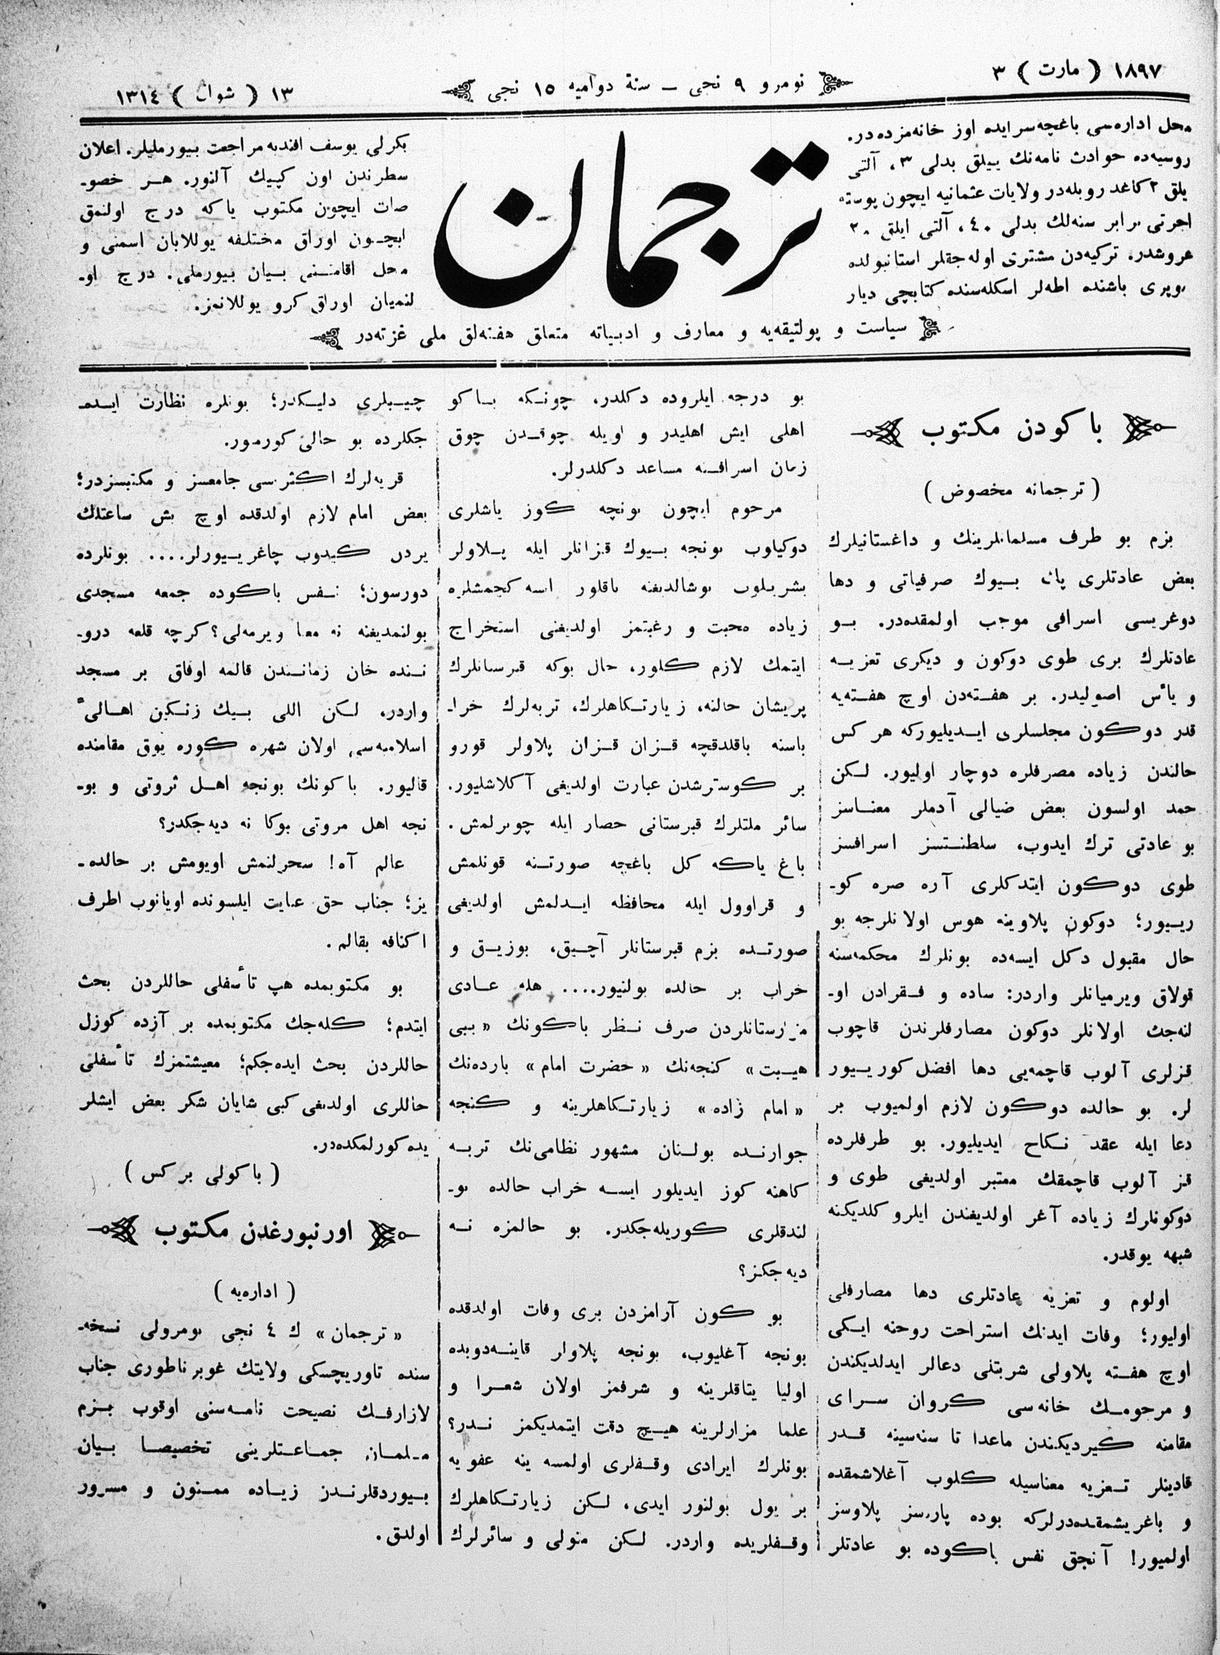 ١٨٩٧ ( مارت ) ٣
نومرو ٩ نجی – سنهٔ دوامیه ١٥ نجی
١٣ ( شوال ) ١٣١٤
محل اداره‌سی باغچه‌سرایده اوز خانه‌مزده‌در.
روسیه‌ده حوادث نامه‌نك ییللق بدلی ٣، آلتی
یلق ٢ كاغد روبله‌در ولایات عثمانیه ایچون پوسته
اجرتی برابر سنه‌لك بدلی ٤٠، آلتی ایلق ٢٠
غروشدر. تركیه‌دن مشتری اوله‌جقلر استانبولده
كوپری باشنده اطه‌لر اسكله‌سنده كتابچی دیار
ترجمان
بكرلی یوسف افندیه مراجعت بیورملیلر. اعلان
سطرندن اون كپیك آلنور. هر خصو-
صات ایچون مكتوب یاكه درج اولنمق
ایچون اوراق مختلفه یوللایان اسمنی و
محل اقامتنی بیان بیورملی. درج او-
لنمیان اوراق كرو یوللانمز.
سیاست و پولتیقه‌یه و معارف و ادبیاته متعلق هفته‌لق ملی غزته‌در
باكودن مكتوب
( ترجمانه مخصوص )
بزم بو طرف مسلمانلرینك و داغستانیلرك
بعض عادتلری پك بیوك صرفیاتی و دها
دوغریسی اسرافی موجب اولمقده‌در. بو
عادتلرك بری طوی دوكون و دیكری تعزیه
و یأس اصولیدر. بر هفته‌دن اوچ هفته‌یه
قدر دوكون مجلسلری ایدیلیوركه هر كس
حالندن زیاده مصرفلره دوچار اولیور. لكن
حمد اولسون بعض ضیالی آدملر معناسز
بو عادتی ترك ایدوب، سلطنتسز اسرافسز
طوی دوكون ایتدكلری آره صره كو-
رییور؛ دوكون پلاوینه هوس اولانلرجه بو
حال مقبول دكل ایسه‌ده بونلرك محكمه‌سنه
قولاق ویرمیانلر واردر: ساده و فقرادن او-
لنه‌جك اولانلر دوكون مصارفلرندن قاچوب
قزلری آلوب قاچمه‌یی دها افضل كورییور
لر. بو حالده دوكون لازم اولمیوب بر
دعا ایله عقد نكاح ایدیلیور. بو طرفلرده
قز آلوب قاچمقك معتبر اولدیغی طوی و
دوكونلرك زیاده آغر اولدیغندن ایلرو كلدیكنه
شبهه یوقدر.
اولوم و تعزیه عادتلری دها مصارفلی
اولیور؛ وفات ایدنك استراحت روحنه ایكی
اوچ هفته پلاولی شربتلی دعالر ایدلدیكندن
و مرحومك خانه‌سی كروان سرای
مقامنه كیردیكندن ماعدا تا سنه‌سینه قدر
قادینلر تعزیه معناسیله كلوب آغلاشمقده
و باغریشمقده‌درلركه بوده پاره‌سز پلاوسز
اولمیور! آنجق نفس باكوده بو عادتلر
بو درجه ایلروده دكلدر. چونكه باكو
اهلی ایش اهلیدر و اویله چوقدن چوق
زمان اسرافنه مساعد دكلدرلر.
مرحوم ایچون بونچه كوز یاشلری
دوكیاوب بونجه بیوك قزانلر ایله پلاولر
بشریلوب بوشالدیغنه باقلور اسه كچمشلره
زیاده محبت و رغبتمز اولدیغنی استخراج
ایتمك لازم كلور، حال بوكه قبرستانلرك
پریشان حالنه، زیارتكاهلرك، تربه‌لرك خرا-
باسنه باقلدقچه قزان قزان پلاولر قورو
بر كوسترشدن عبارت اولدیغی آكلاشلیور.
سائر ملتلرك قبرستانی حصار ایله چویرلمش.
باغ یاكه كل باغچه صورتنه قونلمش
و قراوول ایله محافظه ایدلمش اولدیغی
صورتده بزم قبرستانلر آچیق، بوزیق و
خراب بر حالده بولنیور.... هله عادی
مزارستانلردن صرف نظر باكونك «بیبی
هیبت» كنجه‌نك «حضرت امام» بارده‌نك
«امام زاده» زیارتكاهلرینه و كنجه
جوارنده بولنان مشهور نظامی‌نك تربه
كاهنه كوز ایدیلور ایسه خراب حالده بو-
لندقلری كوریله‌جكدر. بو حالمزه نه
دیه‌جكز؟
بو كون آرامزدن بری وفات اولدقده
بونجه آغلیوب، بونجه پلاوار قاینه‌دوبده
اولیا یتاقلرینه و شرفمز اولان شعرا و
علما مزارلرینه هیچ دقت ایتمدیكمز ندر؟
بونلرك ایرادی وقفلری اولمسه ینه عفویه
بر یول بولنور ایدی، لكن زیارتكاهلرك
وقفلریده واردر. لكن متولی و سائرلرك
چیبلری دلیكدر؛ بونلره نظارت ایده-
جكلرده بو حالی كورمیور.
قریه‌لرك اكثریسی جامعسز و مكتبسزدر؛
بعض امام لازم اولدقده اوچ بش ساعتلك
یردن كیدوب چاغرییورلر.... بونلرده
دورسون؛ نفس باكوده جمعه مسجدی
بولنمدیغنه نه معنا ویرمه‌لی؟ كرچه قلعه درو-
ننده خان زمانندن قالمه اوفاق بر مسجد
واردر، لكن اللی بیك زنكین اهالیٔ
اسلامیه‌سی اولان شهره كوره یوق مقامنده
قالیور. باكونك بونجه اهل ثروتی و بو-
نجه اهل مروتی بوكا نه دیه‌جكدر؟
عالم آه! سحرلنمش اویومش بر حالده-
یز؛ جناب حق عنایت ایلسونده اویانوب اطرف
اكنافه بقالم.
بو مكتوبمده هپ تأسفلی حاللردن بحث
ایتدم؛ كله‌جك مكتوبمده بر آزده كوزل
حاللردن بحث ایده‌جكم؛ معیشتمزك تأسفلی
حاللری اولدیغی كبی شایان شكر بعض ایشلر
یده كورلمكده‌در.
( باكولی بر كس )
اورنبورغدن مكتوب
( اداره‌یه )
«ترجمان» ك ٤ نجی نومرولی نسخه-
سنده تاوریچسكی ولایتك غوبرناطوری جناب
لازارفك نصیحت نامه‌سنی اوقوب بزم
مسلمان جماعتلرینی تخصیصا بیان
بیوردقلرندن زیاده ممنون و مسرور
اولدق.